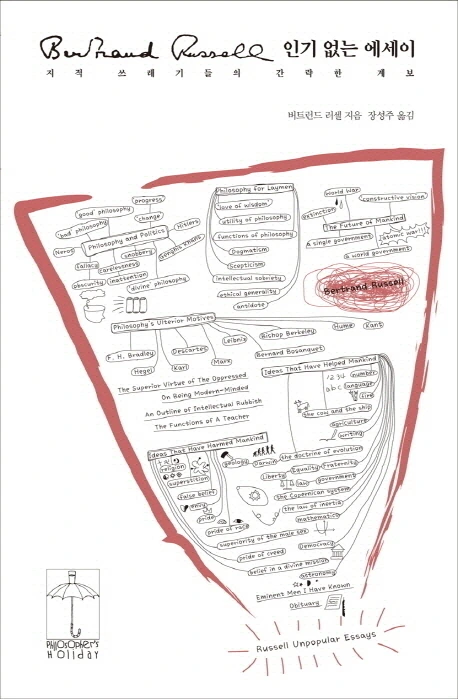 Bertrand Russell 인기 없는 에세이
지적 쓰레기들의 간략한 계보
버트런드 러셀 지음 장성주 옮김
progress
"good" philosophy
change
"bad" philosophy
Hitlers
Philosophy and Politics
Neros
snobbery
Genghis Khans
fallacy
carelessness
inattention
obscurity
"divine" philosophy
Philosophy for Laymen
'love of wisdom'
utility of philosophy
functions of philosophy
Dogmatism
Scepticism
intellectual sobriety
ethical generality
antidote
World War
constructive vision
extinction
The Future of Mankind
a single government
atomic war!!!
a world government
Bertrand Russell
Philosophy's Ulterior Motives
Leibniz
Bishop Berkeley
Hume
Kant
F. H. Bradley
Descartes
Bernard Bosanquet
Hegel
Karl
Marx
The Superior Virtue of The Oppressed
On Being Modern-Minded
An Outline of Intellectual Rubbish
The Functions of A Teacher
Ideas That Have Helped Mankind
1 2 3 4
number
a b c
language
fire
the cow and the ship
agriculture
writing
Ideas That Have Harmed Mankind
religion
superstition
false belief
envy
pride
pride of race
superiority of the male sex
pride of creed
belief in a divine mission
geology
Darwin
the doctrine of evolution
Liberty
Equality
Fraternity
law
government
the Copernican system
the law of inertia
mathematics
Democracy
astronomy
Eminent Men I Have Known
Obituary
Russell Unpopular Essays
PHILOSOPHER'S
HOLIDAY